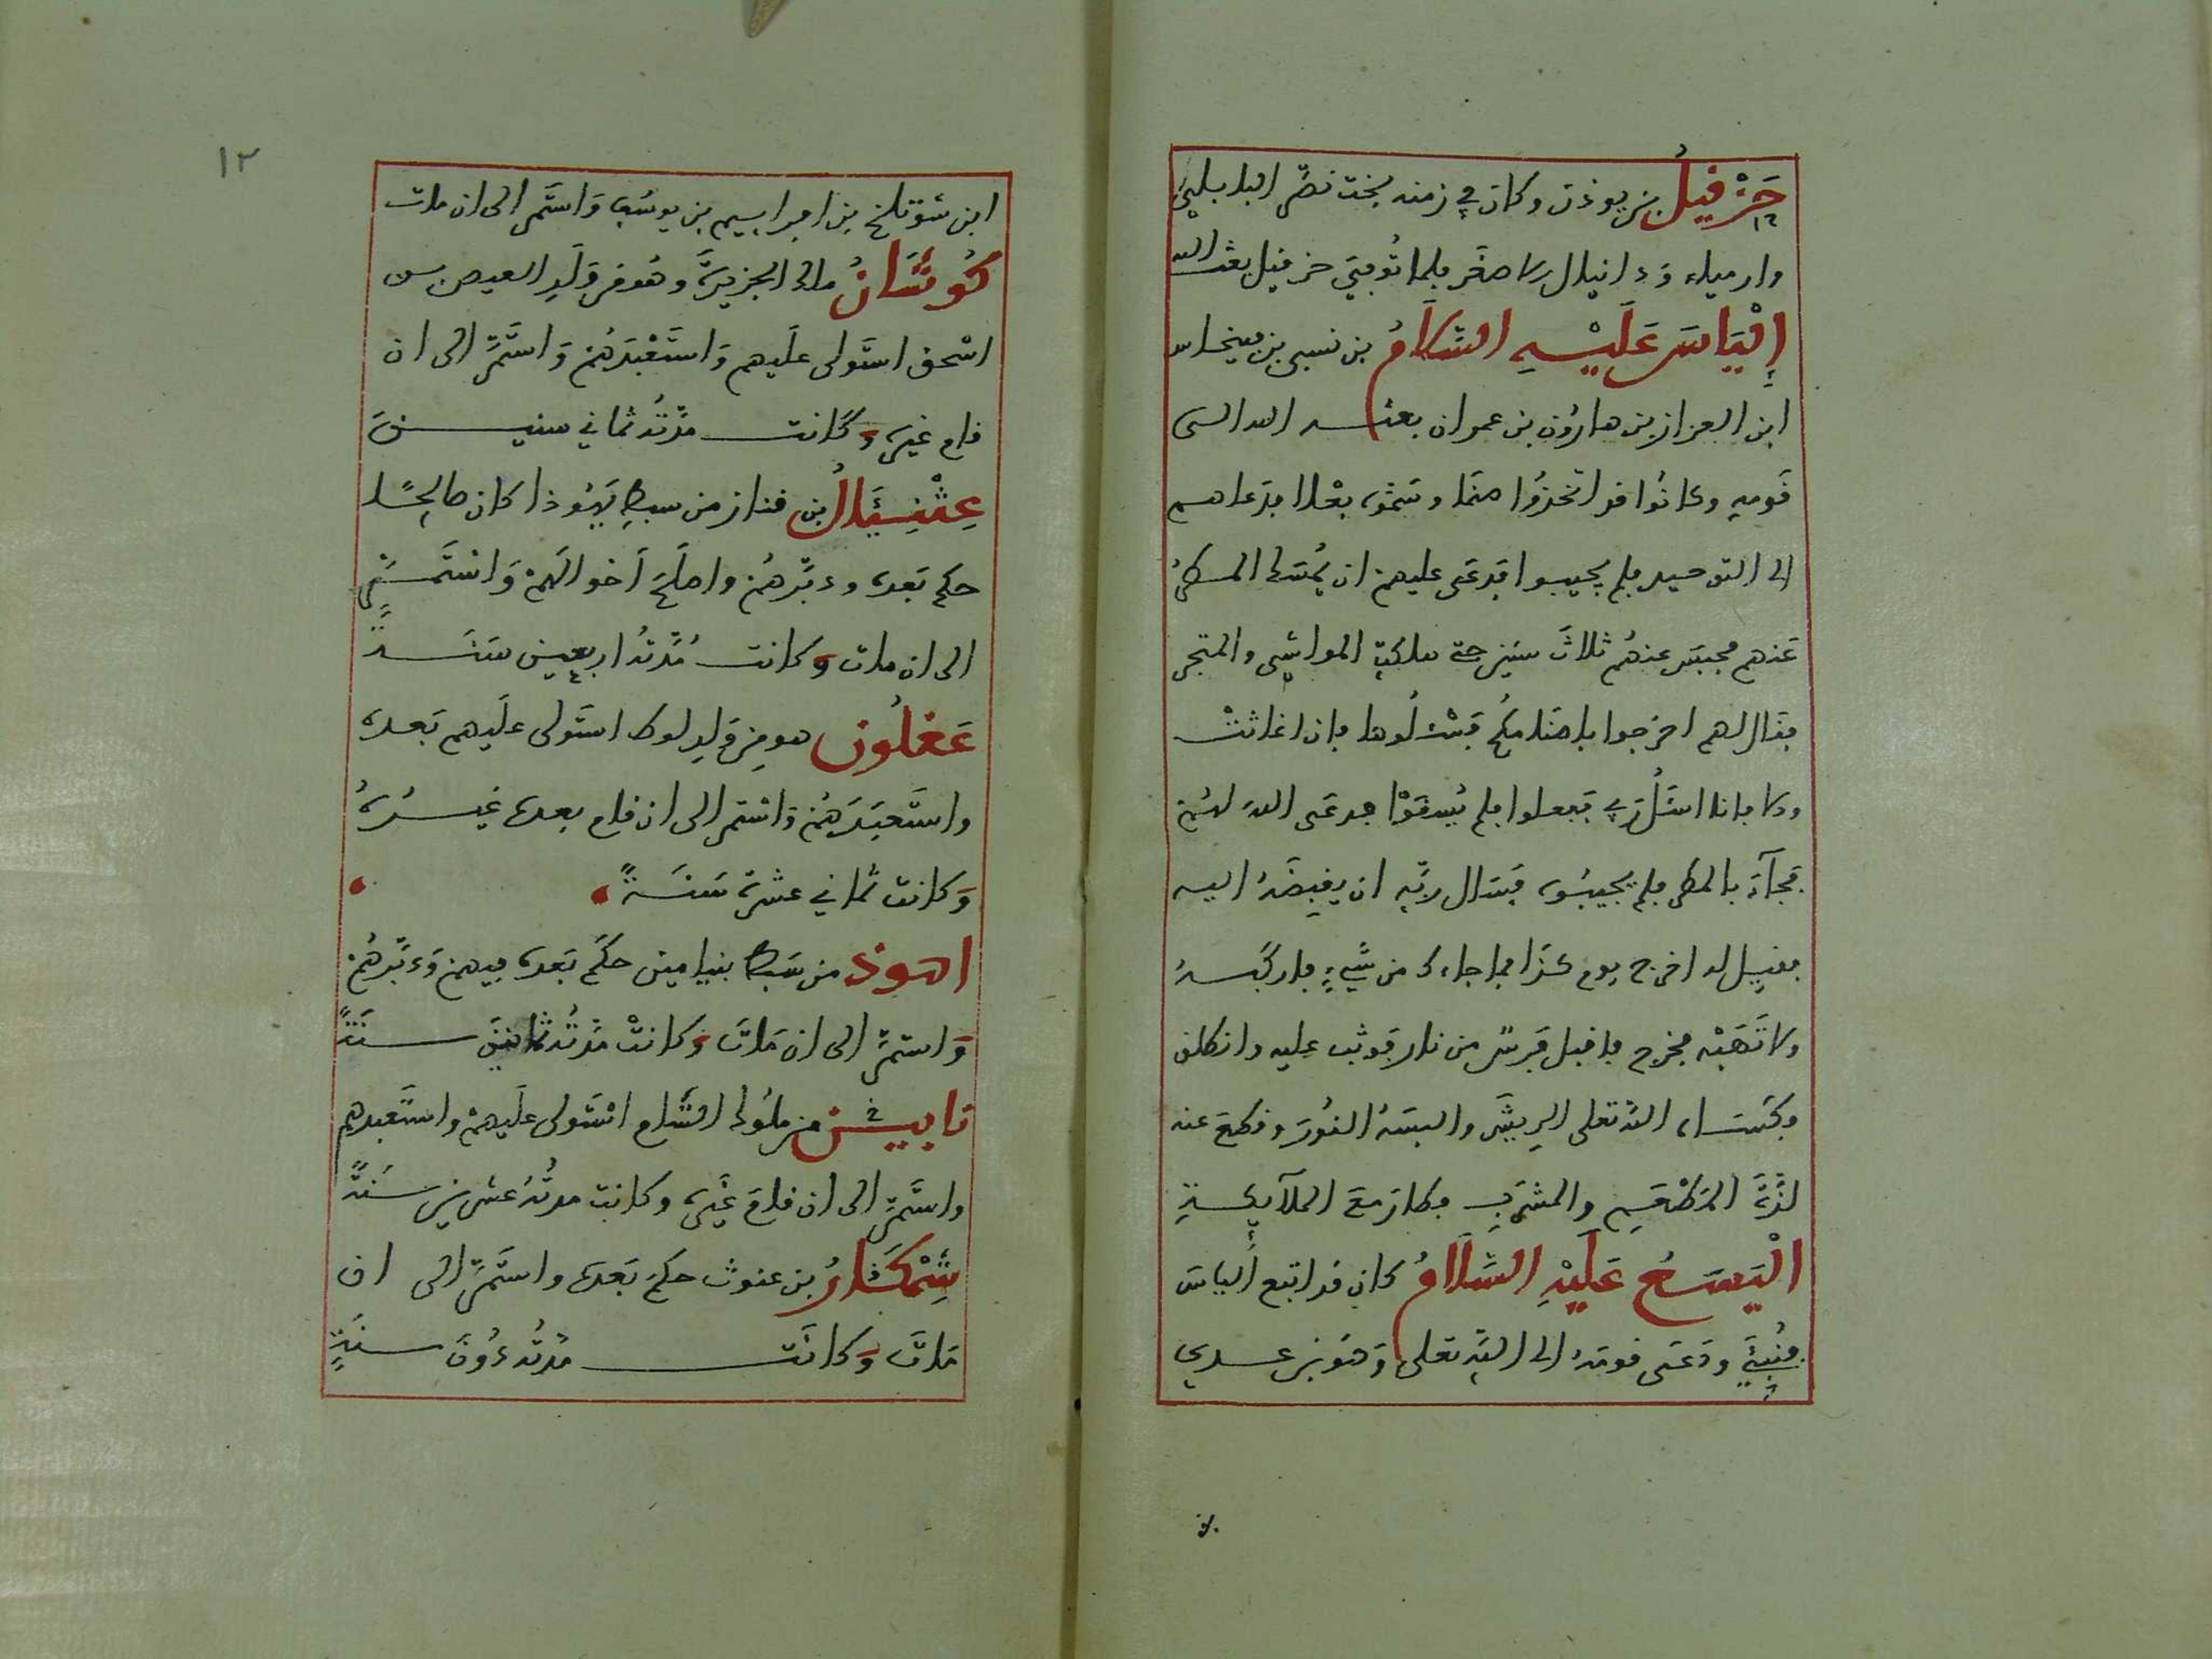 حَزْقِيلُ بن بوذن وكان في زمنه بخت نصّر البابليّ
وارمياء ودانيال الاصغر فلما توفي حزقيل بعث الله
إِلْيَاسَ عَلَيْهِ السَّلَامُ بن نسى بن فينحاس
ابن العزاز بن هارون بن عمران بعثه الله الى
قومه وكانوا قد اتخذوا صنما وسموه بعلا فدعاهم
الى التوحيد فلم يجيبوا فدعى عليهم ان يمسك المطر
عنهم فحبس عنهم ثلاث سنين حتى هلكت المواشي والشجر
فقال لهم اخرجوا باصنامكم فسئلوها فإن اغاثتْ
والا فانا اسئل ربي ففعلوا فلم يُسقَوْا فدعى الله لهم
فجآءَ بالمطر فلم يجيبوه فسال ربّه ان يقبضَهُ اليه
فقيل له اخرج يوم كذا فما جاءك من شيءٍ فاركبه
ولا تَهَبْه فخرج فاقبل فرس من نار فوثب عليه وانطلق
وكساه الله تعلى الريش والبسه النور وقطع عنه
لذّة المطعم والمشرب فكان مع الملآيكة
الْيَسَعُ عَلَيْهِ السَّلَامُ كان قد اتبع الياس
فنُبِّئَ ودعى قومه الى الله تعلى وهو بن عدي
١٢
ابن شوتلخ بن ابراهيم بن يوسف واستمر الى ان مات
كُوشَانُ ملك الجزيرة وهو من ولد العيص بن
اسحق استولى عليهم واستعبدهم واستمرّ الى ان
قام غيره وكانت مدّتُه ثماني سنينَ
عِثْنِيَالُ بن قناز من سبط يهوذا كان صالحًا
حكم بعده ودبّرهم واصلح احوالهم واستمر
الى ان مات وكانت مُدّتُه اربعين سنةً
عَغلُون هو من ولد لوط استولى عليهم بعده
واستعبدهم واستمر الى ان قام بعده غيره
وكانت ثماني عشرة سنةً
اهوذ من سبط بنيامين حكم بعده فيهم ودبّرهم
واستمرّ الى ان مات وكانتْ مدّتُه ثمانين سنةً
نابين من ملوك الشام استولى عليهم واستعبدهم
واستمرّ الى ان قام غيره وكانت مدتُه عشرين سنةً
شِمْكَارُ بن عنوث حكم بعده واستمرّ الى ان
مات وكانت مدّتُه دُونَ سنةٍ